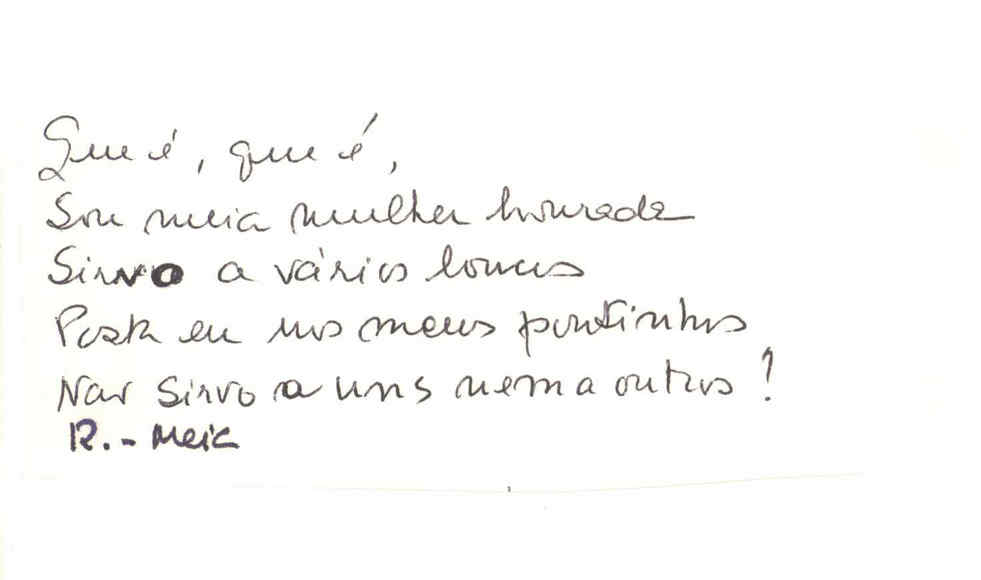 Que é, que é,
Sou meia mulher honrada
Sirvo a vários loucos
Posta eu nos meus pontinhos
Nao sirvo a uns nem a outros!
R.- Meia